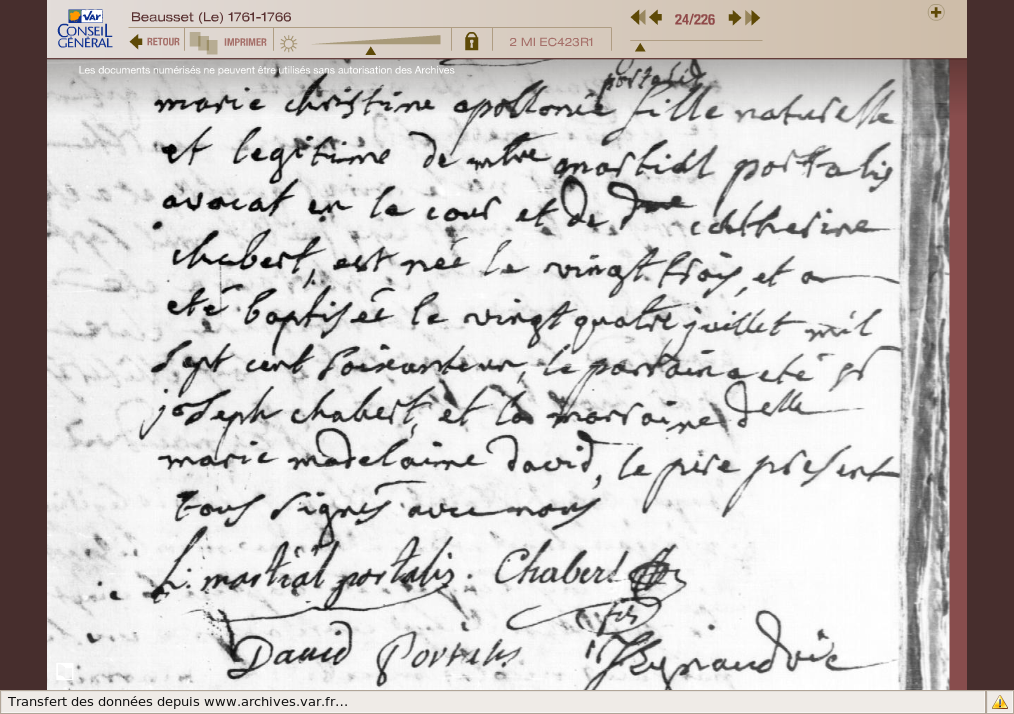 Beausset (Le) 1761-1766
24/226
VAR
CONSEIL
GÉNÉRAL
RETOUR
IMPRIMER
2 MI EC423R1
Les documents numérisés ne peuvent être utilisés sans autorisation des Archives
portalis
marie christine apollonie fille naturelle
et legitime de mtre martial portalis
avocat en la cour et de dme catherine
chabert, est née le vingt trois, et a
eté baptisée le vingt quatre juillet mil
sept cent soixanteun, le parrain a eté sr
joseph chabert, et la marraine delle
marie madelaine david, le père présent
tous signés avec nous
L. martial portalis. Chabert
fils
David Portalis Reynaud vic
Transfert des données depuis www.archives.var.fr...